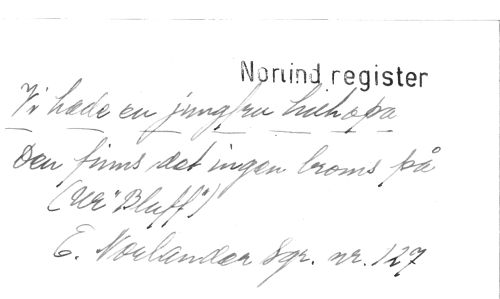 Norlind register
Vi hade en jungfru hithopa
Den finns det ingen broms på
(Ur "Bluff")
E. Norlander Sgr. nr. 127